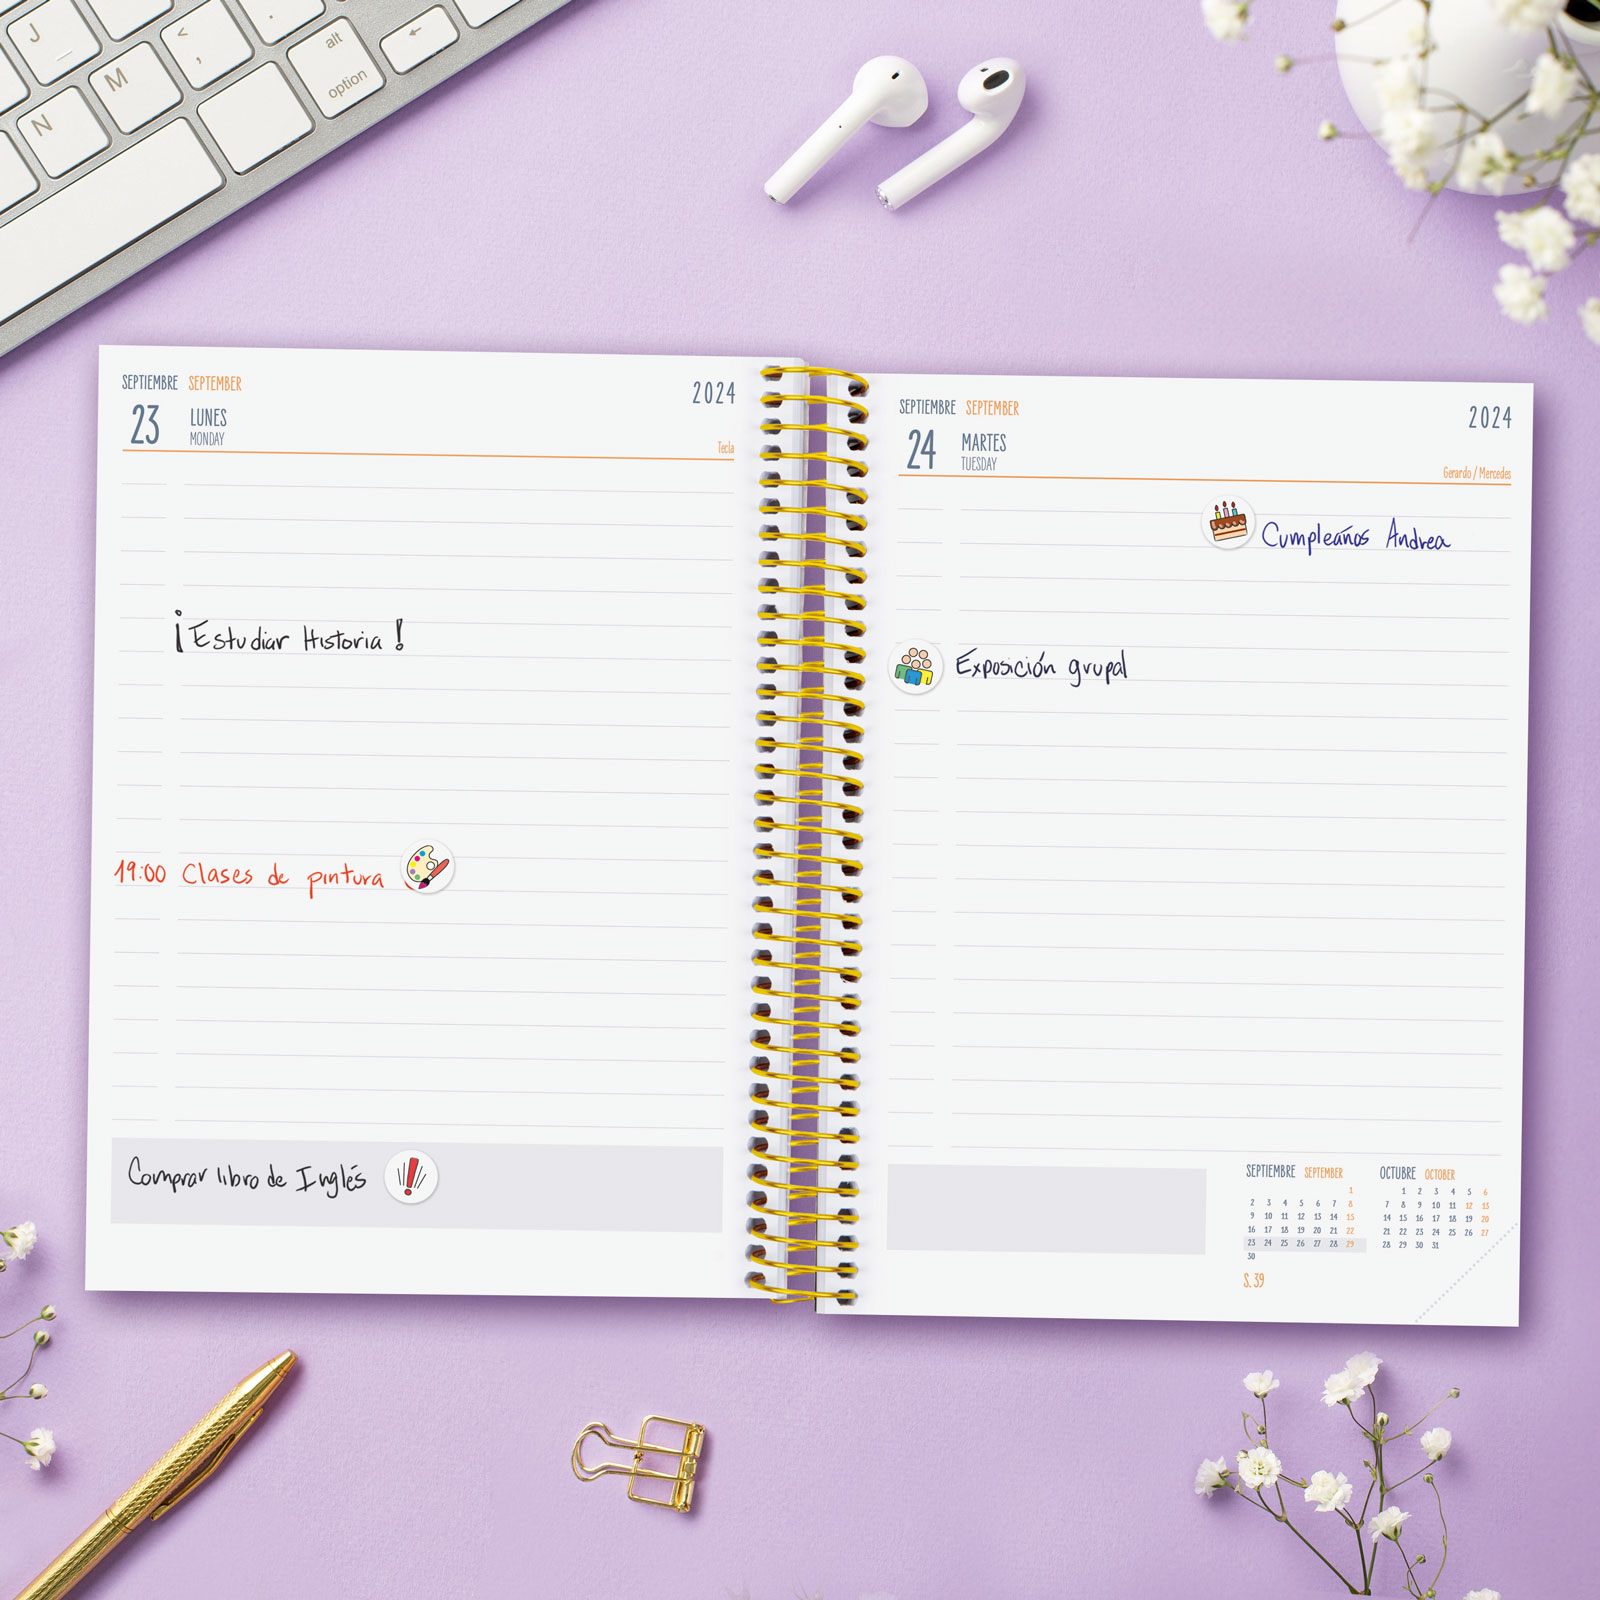 J
M
N
<
,
alt
option
←
SEPTIEMBRE SEPTEMBER
2024
23 LUNES
MONDAY
Tecla
¡Estudiar Historia!
19:00 Clases de pintura
Comprar libro de Inglés
SEPTIEMBRE SEPTEMBER
2024
24 MARTES
TUESDAY
Gerardo / Mercedes
Cumpleaños Andrea
Exposición grupal
SEPTIEMBRE SEPTEMBER
1
2 3 4 5 6 7 8
9 10 11 12 13 14 15
16 17 18 19 20 21 22
23 24 25 26 27 28 29
30
S. 39
OCTUBRE OCTOBER
1 2 3 4 5 6
7 8 9 10 11 12 13
14 15 16 17 18 19 20
21 22 23 24 25 26 27
28 29 30 31